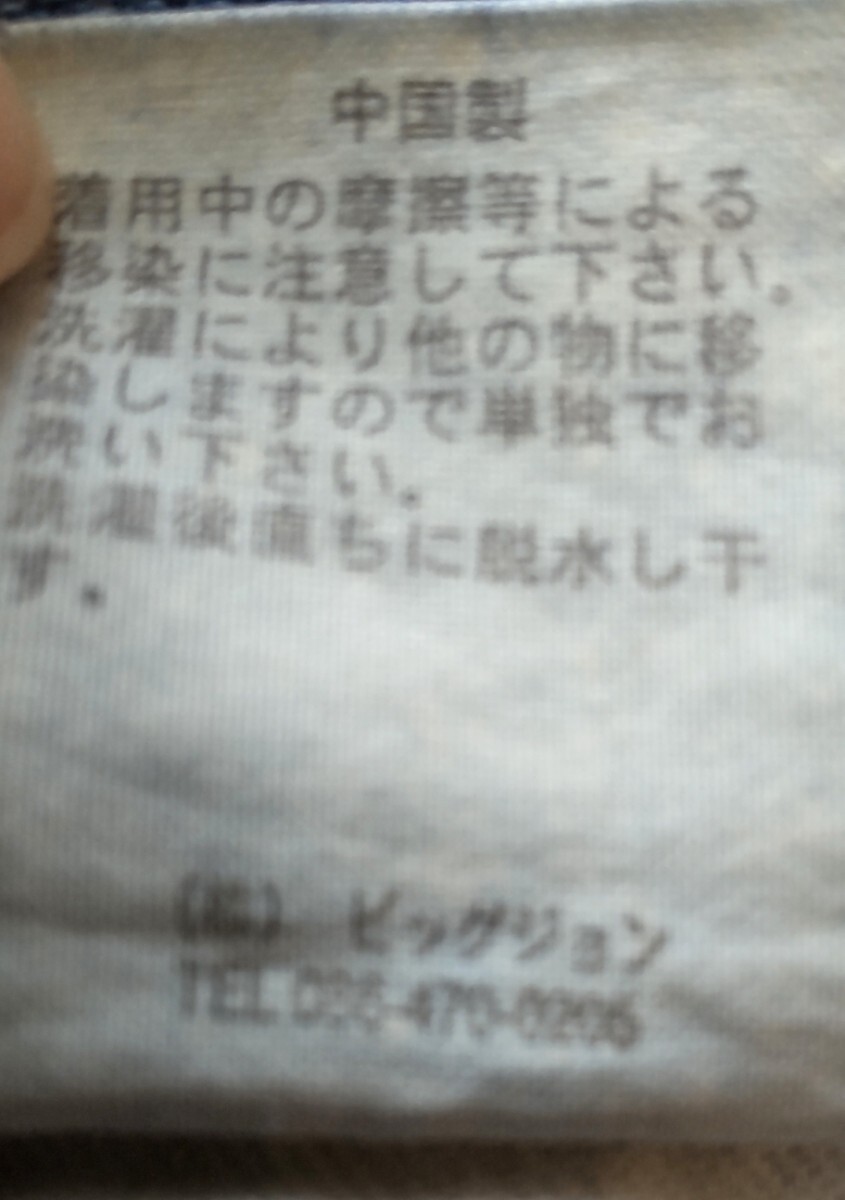 中国製
着用中の摩擦等による
移染に注意して下さい。
洗濯により他の物に移
染しますので単独でお
洗い下さい。
洗濯後直ちに脱水し干
す。
(株) ビッグジョン
TEL